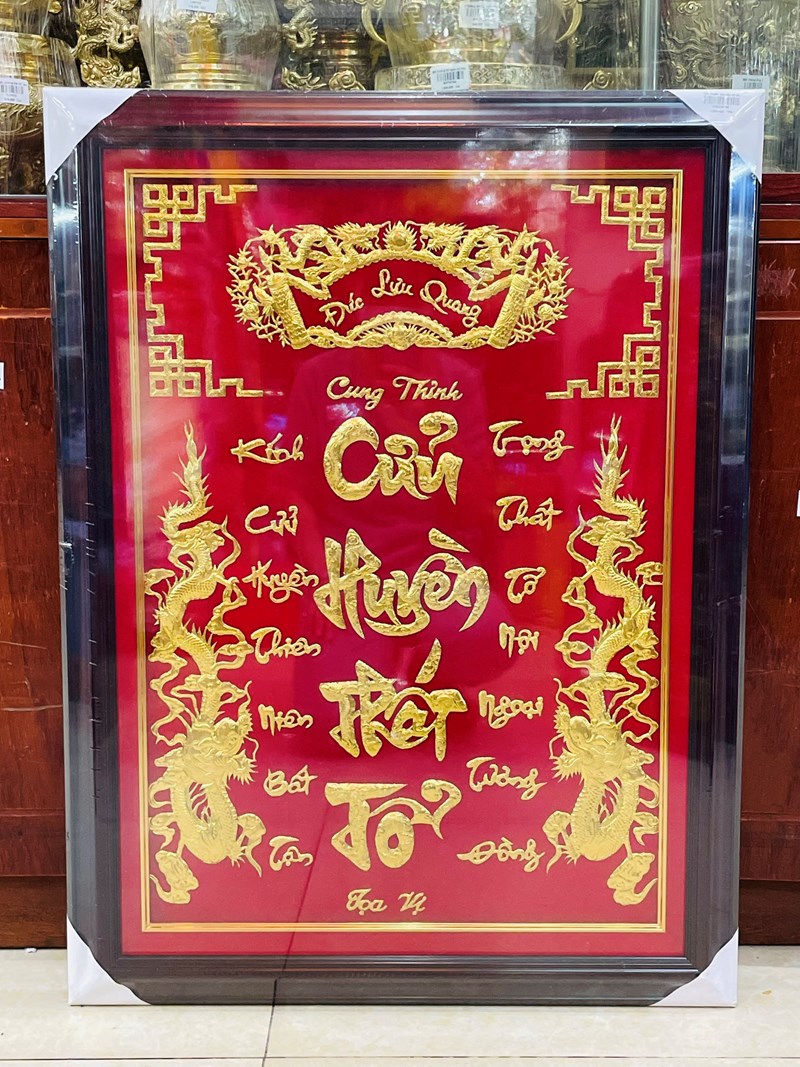 Đức Lưu Quang
Cung Thỉnh
Cửu
Huyền
Thất
Tổ
Tọa Vị
Kính
Cửu
Huyền
Thiên
Niên
Bất
Tận
Trọng
Thất
Tổ
Nội
Ngoại
Tương
Đồng